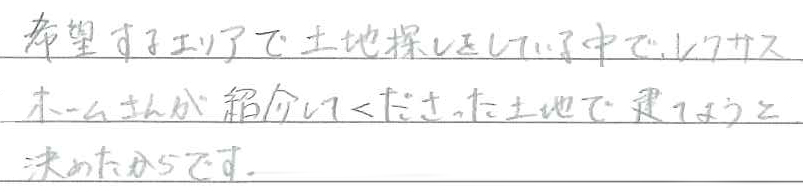 希望するエリアで土地探しをしている中で、レクサス
ホームさんが紹介してくださった土地で建てようと
決めたからです。